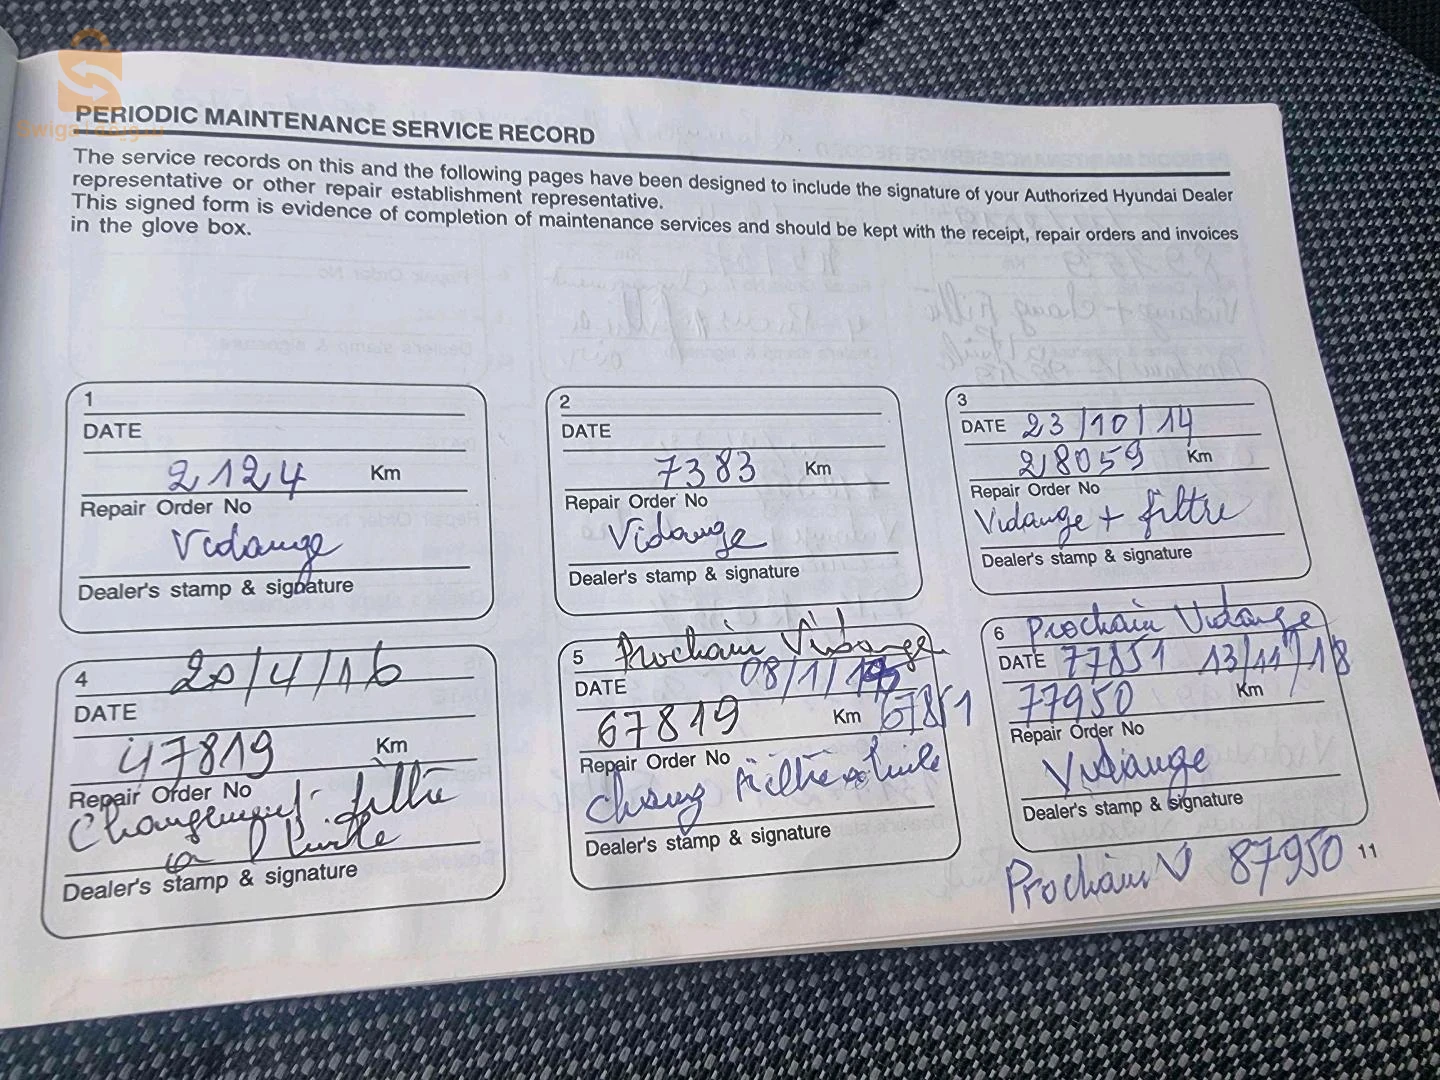 PERIODIC MAINTENANCE SERVICE RECORD
The service records on this and the following pages have been designed to include the signature of your Authorized Hyundai Dealer
representative or other repair establishment representative.
This signed form is evidence of completion of maintenance services and should be kept with the receipt, repair orders and invoices
in the glove box.
1
DATE
2124 Km
Repair Order No
Vidange
Dealer's stamp & signature
2
DATE
7383 Km
Repair Order No
Vidange
Dealer's stamp & signature
3
DATE 23/10/14
28059 Km
Repair Order No
Vidange + filtre
Dealer's stamp & signature
4 20/4/16
DATE
47819 Km
Repair Order No
Changement filtre
Dealer's stamp & signature
5 Prochain Vidange
DATE 08/1/
67819 Km 67851
Repair Order No
Chang filtre huile
Dealer's stamp & signature
6 Prochain Vidange
DATE 77851 13/11/18
77950 Km
Repair Order No
Vidange
Dealer's stamp & signature
Prochain V 87950
11